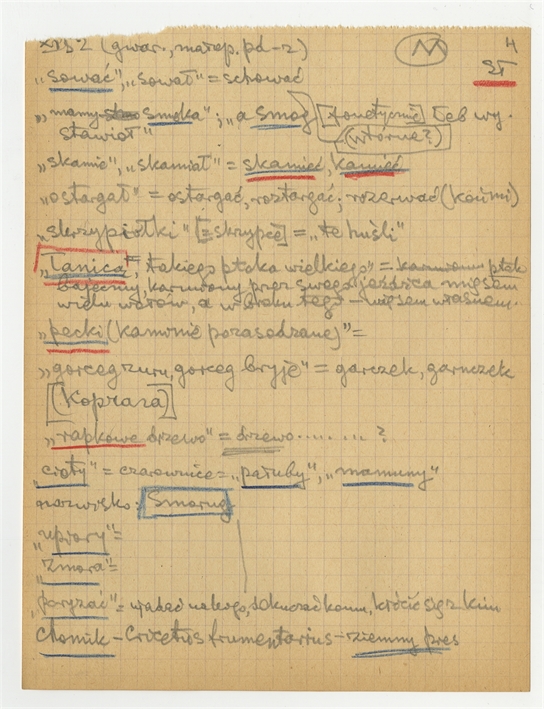 (gwar., małop. pd-z) M 4
„sować”, „sował” = schować ST
„mamy smoka”; „a smog [fonetycznie] łeb wy-
stawioł” (wtórne?)
„skamić”, „skamiał” = skamieć, kamieć
„ostargał” = ostargać, roztargać, rozerwać (końmi)
„skrzypiołki” [= skrzypce] = „te huśli”
„Tanica”, takiego ptoka wielkiego” = ptak
bajeczny, karmiony przez swego jeźdźca mięsem
wielu wołów, a w braku tego – mięsem własnem.
„pecki (kamonie pozasadzane)” =
„gorceg zuru, gorceg bryje” = garczek, garnczek
[Koprara]
„rapkowe drzewo” = drzewo ....... ?
„cioty” = czarownice = „pałuby”, „mamuny”
nazwisko: Smarug
„upiory” =
„Zmora” =
„poryzać” = wpadać na kogo, dokuczać komu, kłócić się z kim
Chomik – Cricetus frumentarius – ziemny pies